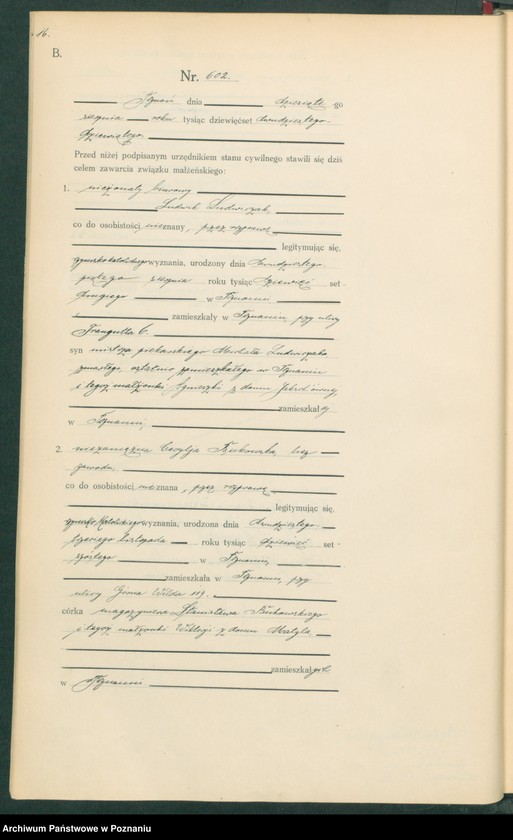 16.
B.
Nr. 602.
Poznań dnia dziesiąte go
sierpnia roku tysiąc dziewięćset dwudziestego
dziewiątego
Przed niżej podpisanym urzędnikiem stanu cywilnego stawili się dziś
celem zawarcia związku małżeńskiego:
1. nieżonaty
Ludwik Ludwiczak,
co do osobistości nieznany, przez
legitymując się,
rzymskokatolickiego wyznania, urodzony dnia dwudziestego
piątego sierpnia roku tysiąc dziewięć set
drugiego w Poznaniu
zamieszkały w Poznaniu, przy ulicy
6.
syn mistrza piekarskiego Michała Ludwiczaka
zmarłego, ostatnio zamieszkałego w Poznaniu
i tegoż małżonki Agnieszki z domu
zamieszkał ej
w Poznaniu,
2. niezamężna Cecylja Bukowska, bez
zawodu,
co do osobistości nieznana, przez
legitymując się,
rzymsko katolickiego wyznania, urodzona dnia dwudziestego
trzeciego listopada roku tysiąc dziewięć set
szóstego w Poznaniu,
zamieszkała w Poznaniu, przy
ulicy Górna Wilda 119.
córka magazyniera Stanisława Bukowskiego
i tegoż małżonki Wiktorji z domu
zamieszkał ych
w Poznaniu
Archiwum Państwowe w Poznaniu